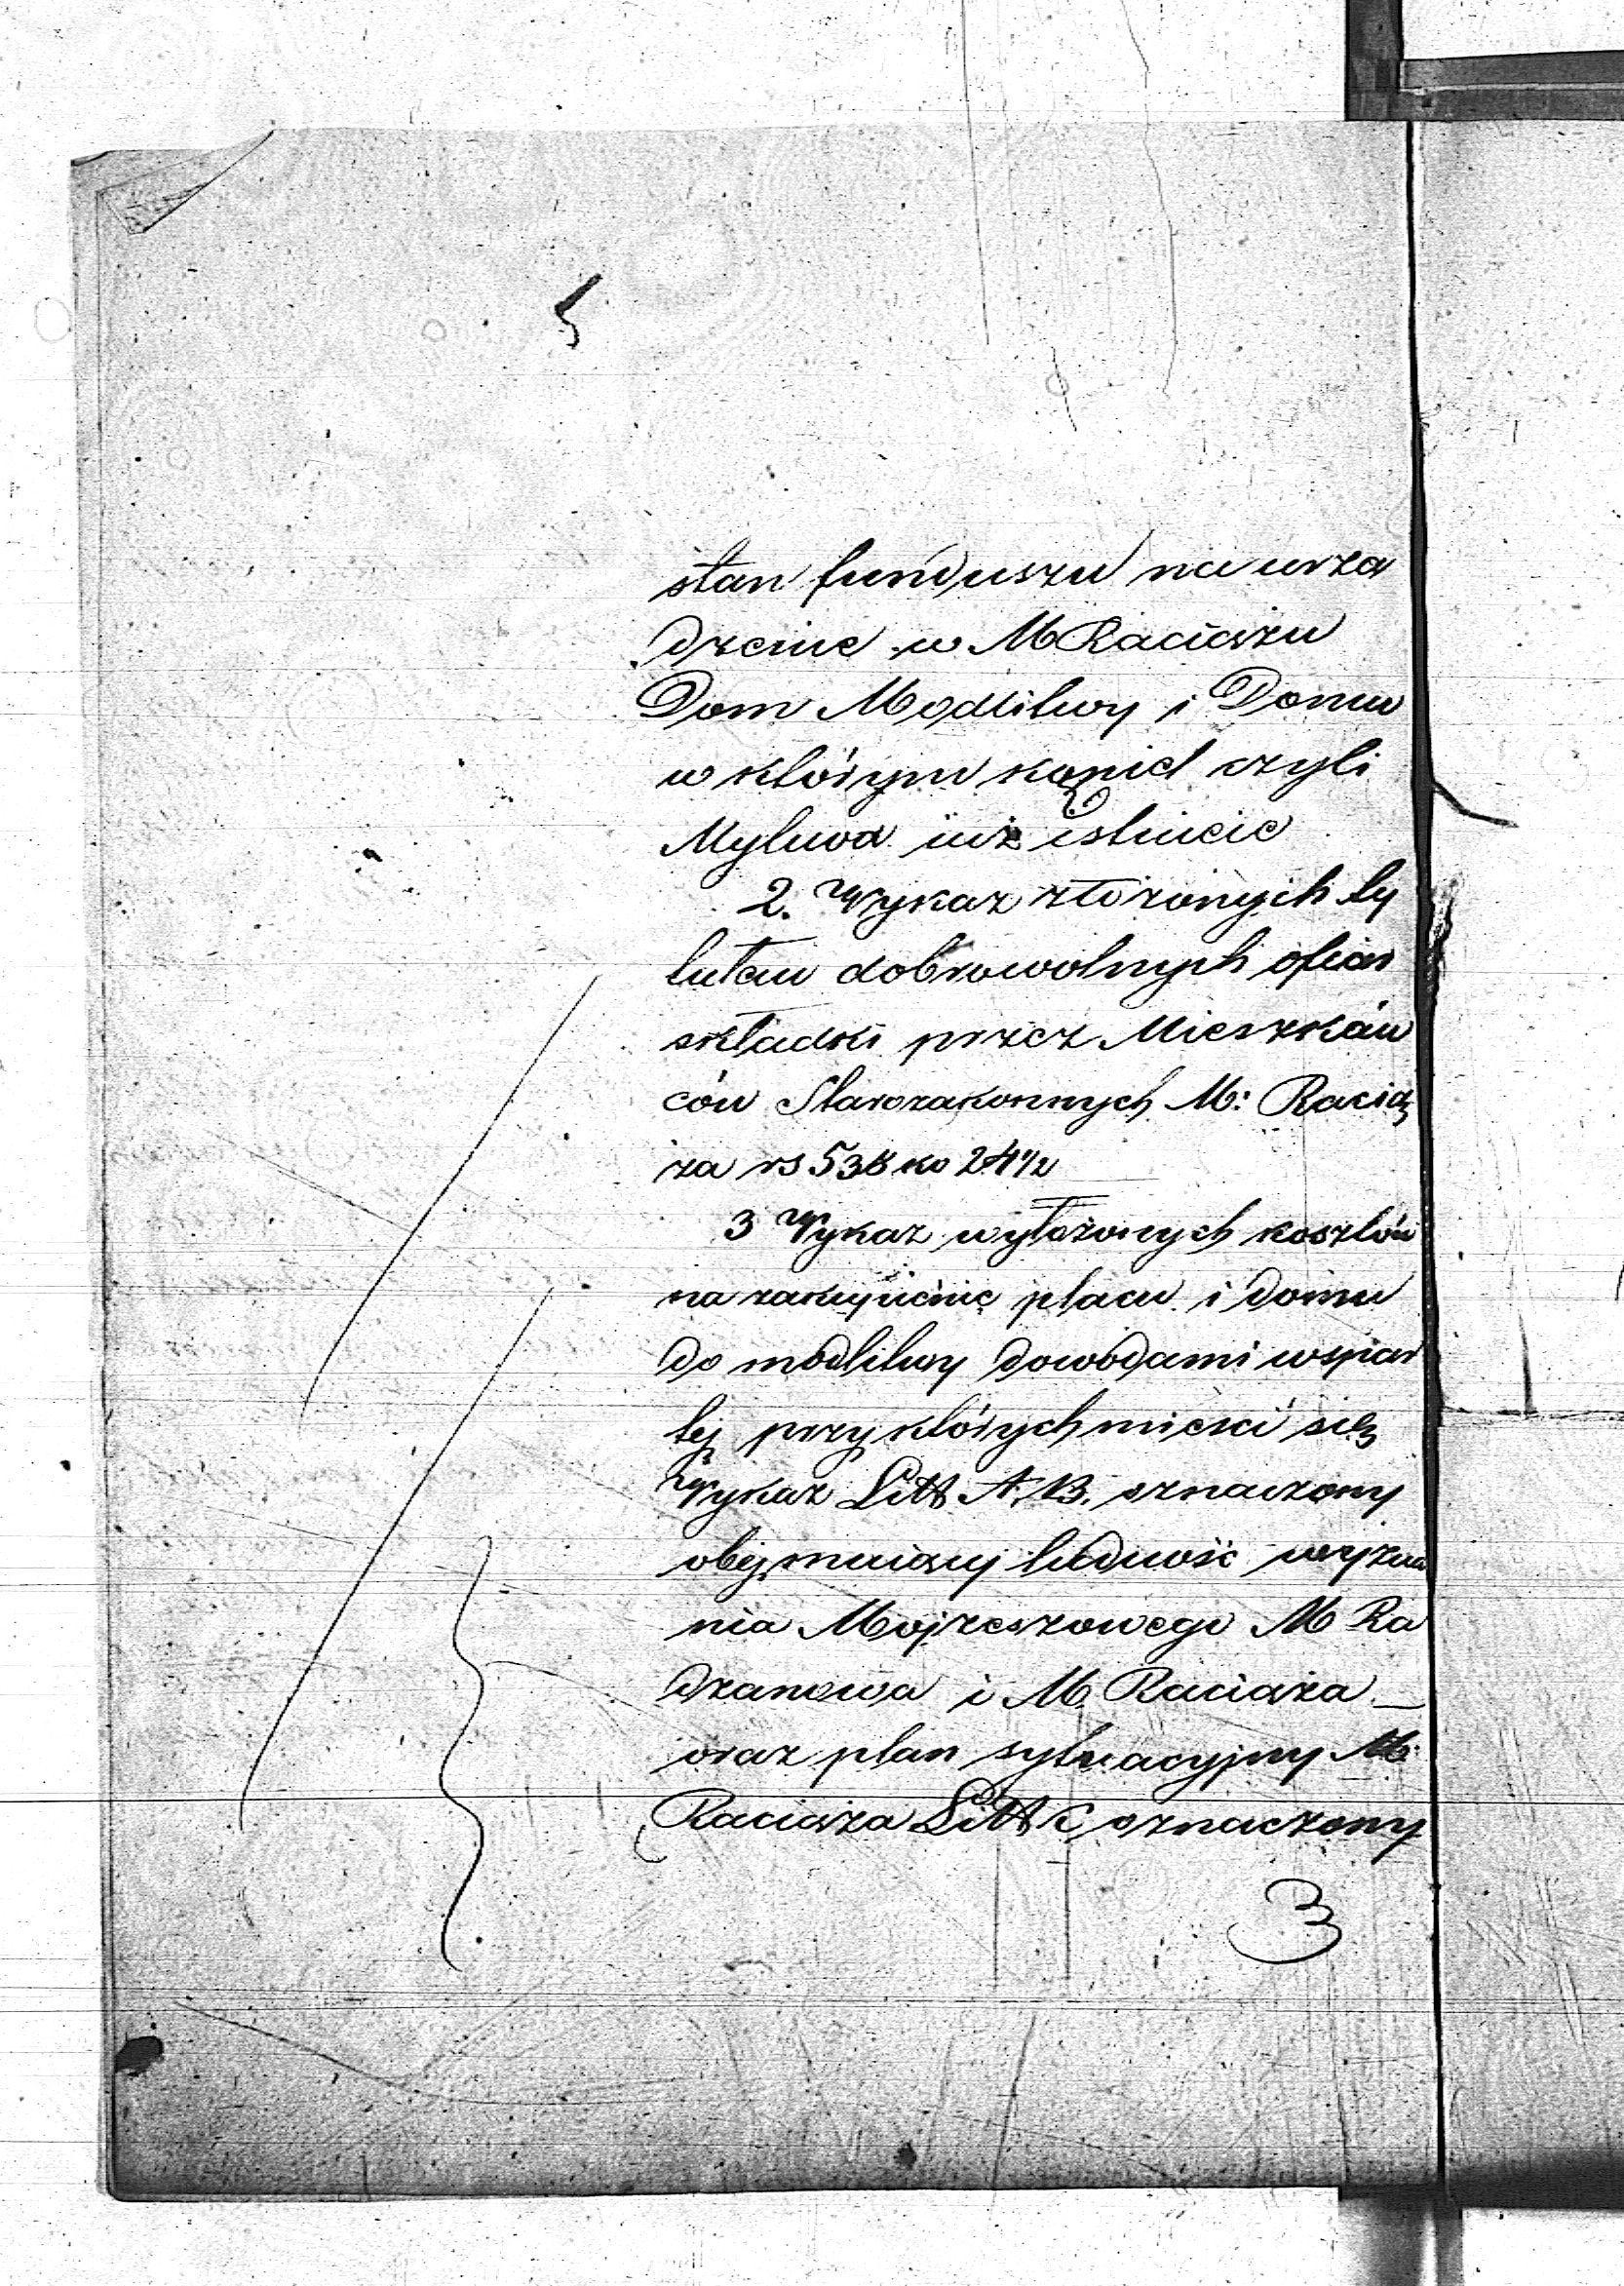 stan funduszu na urzą
dzenie w M Raciążu
Dom Modlitwy i Domu
w którym kąpiel czyli
Mykwa iuż istnieie
2. Wykaz złożonych ty
tułem dobrowolnych ofiar
składki przez Mieszkań
ców Starozakonnych M: Racią
ża rs 538 ko 24 1/2
3 Wykaz wyłożonych kosztów
na zakupienie placu i domu
do modlitwy dowodami wspar
tej przy których mieści się
Wykaz Litt A. B. oznaczony
obejmuiący ludność wyzna
nia Mojżeszowego M Ra
dzanowa i M. Raciąża
oraz plan sytuacyjny M:
Raciąża Litt C oznaczony
3